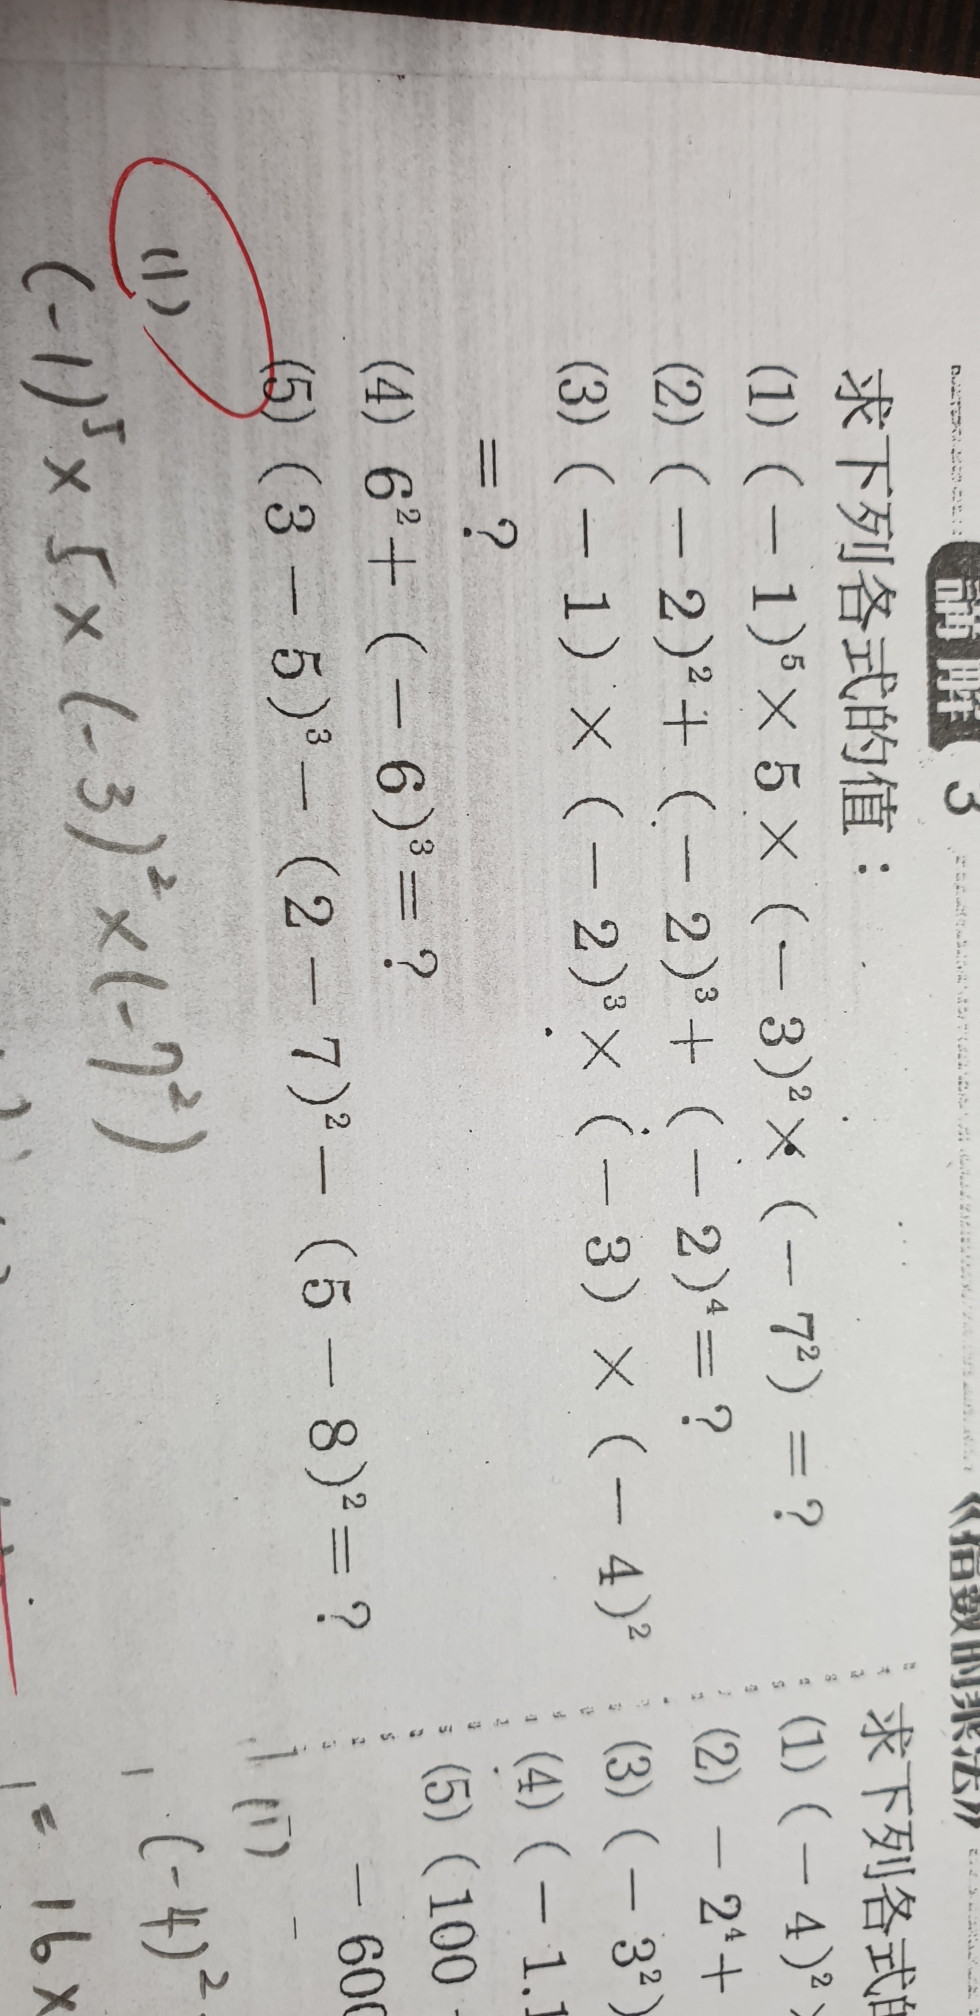 3
《指數的乘法》
求下列各式的值：
(1) (－1)⁵×5×(－3)²×(－7²)＝?
(2) (－2)²＋(－2)³＋(－2)⁴＝?
(3) (－1)×(－2)³×(－3)×(－4)²
＝?
(4) 6²＋(－6)³＝?
(5) (3－5)³－(2－7)²－(5－8)²＝?
(1)
(-1)⁵×5×(-3)²×(-7²)
求下列各式
(1) (－4)²
(2) －2⁴＋
(3) (－3²)
(4) (－1.1
(5) (100
－600
(1)
(-4)²
= 16×